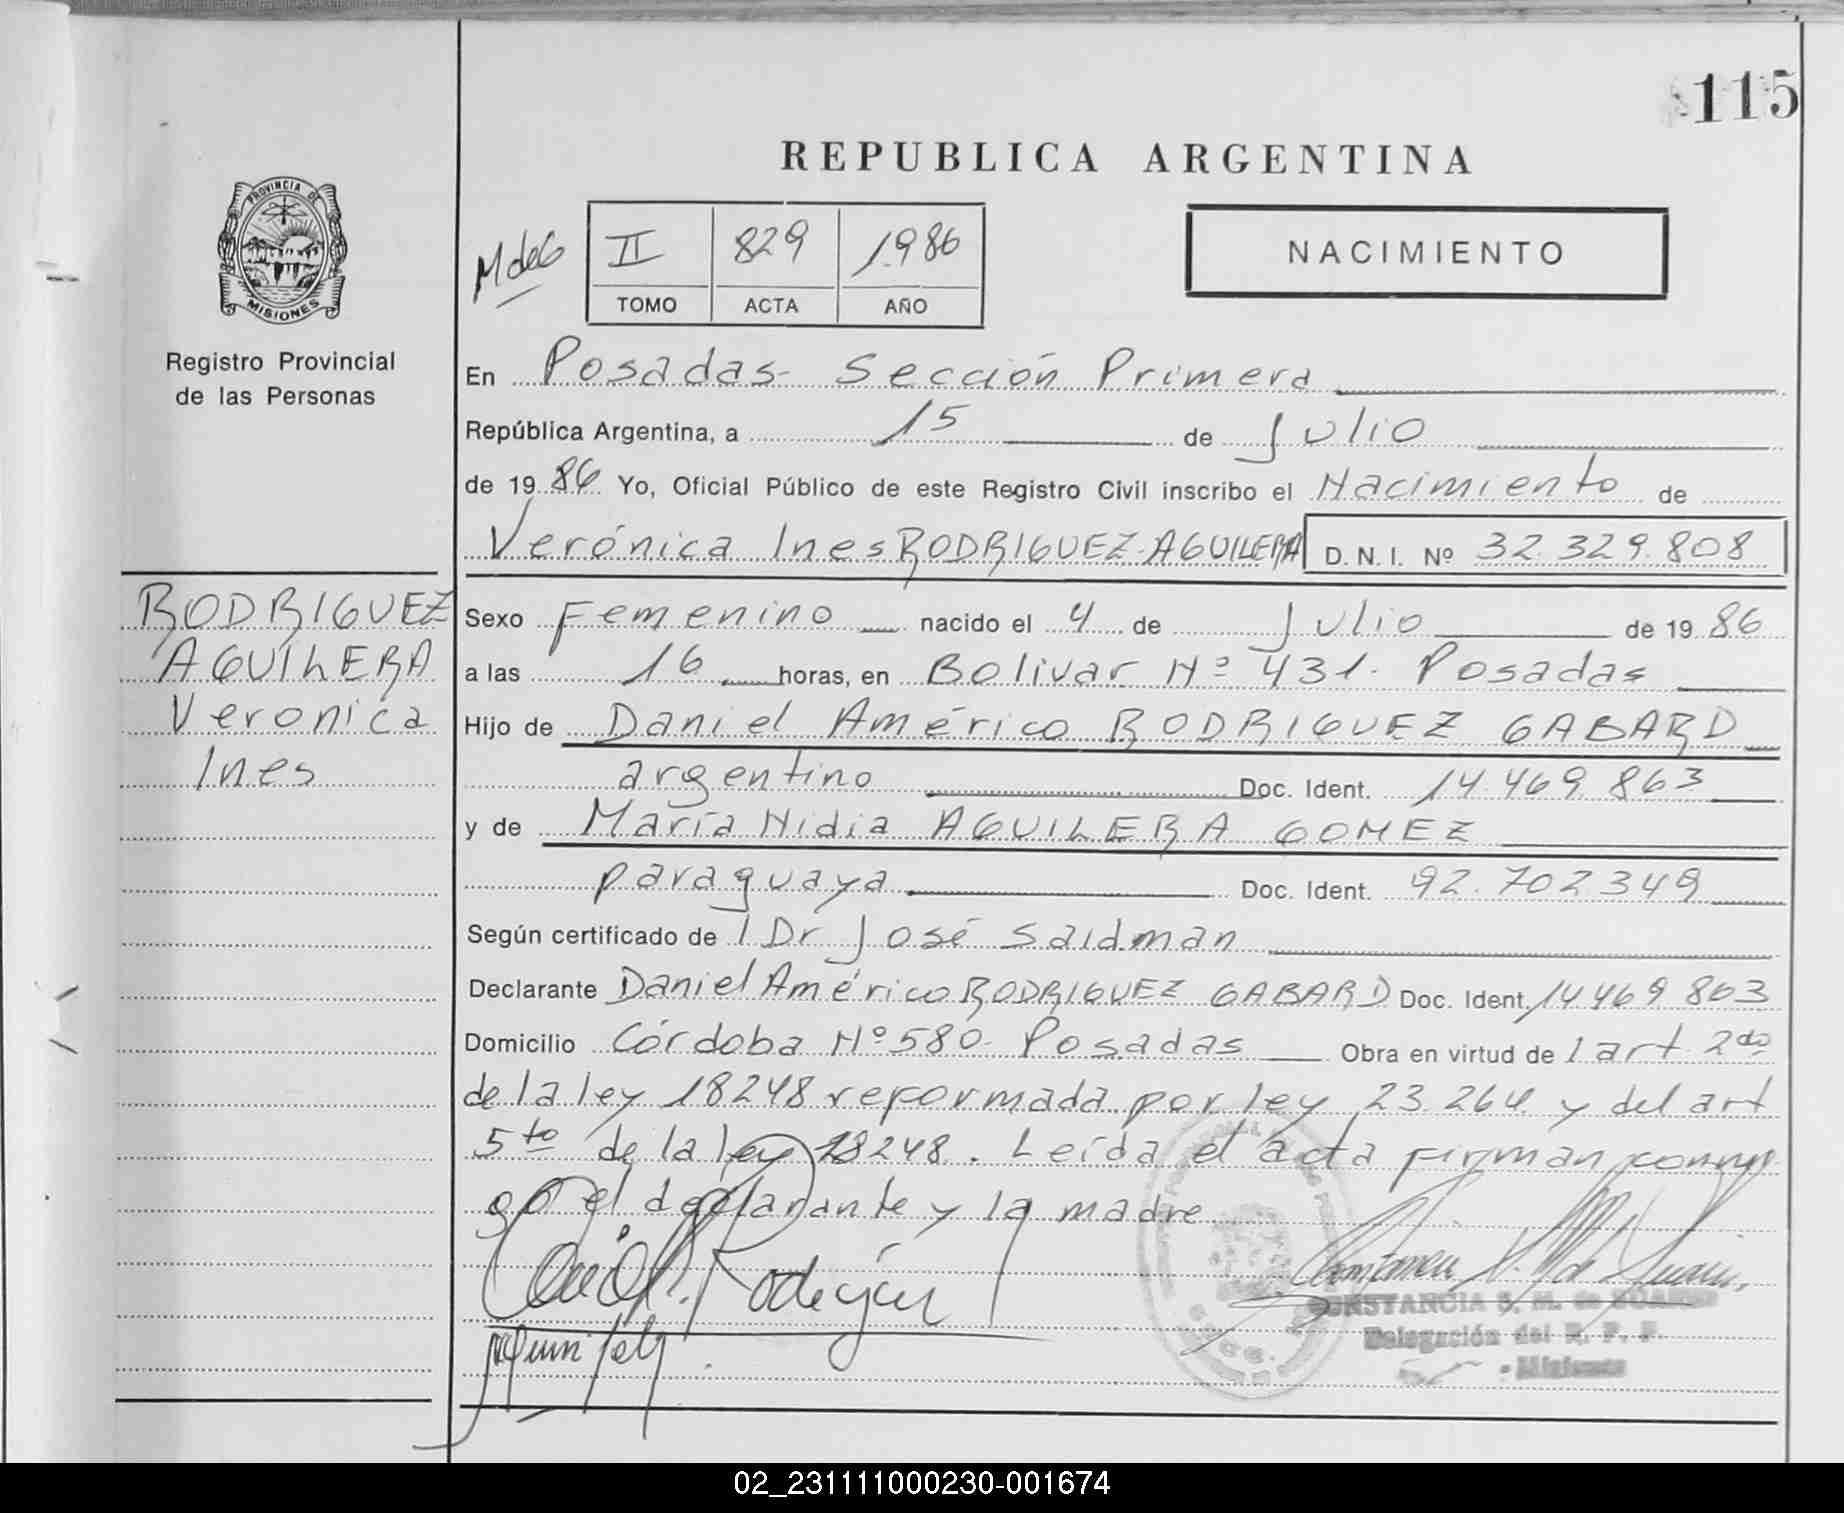 115
REPUBLICA ARGENTINA
PROVINCIA DE
MISIONES
Registro Provincial
de las Personas
M de G
II 829 1986
TOMO ACTA AÑO
NACIMIENTO
En Posadas - Sección Primera
República Argentina, a 15 de Julio
de 19 86 Yo, Oficial Público de este Registro Civil inscribo el Nacimiento de
Verónica Ines RODRIGUEZ - AGUILERA D. N. I. Nº 32.329.808
RODRIGUEZ
AGUILERA
Veronica
Ines
Sexo Femenino nacido el 4 de Julio de 19 86
a las 16 horas, en Bolivar Nº 431. Posadas
Hijo de Daniel Américo RODRIGUEZ GABARD
argentino Doc. Ident. 14.469.863
y de María Nidia AGUILERA GOMEZ
paraguaya Doc. Ident. 92.702.349
Según certificado de l Dr José Saidman
Declarante Daniel Américo RODRIGUEZ GABARD Doc. Ident. 14.469.863
Domicilio Córdoba Nº 580 - Posadas Obra en virtud de l art 2do
de la ley 18248 reformada por ley 23.264 y del art
5to de la ley 18248. Leída el acta firman conmi
go el declarante y la madre
CONSTANCIA S. M. de SUAREZ
Delegación del R. P. P.
- Misiones
02_231111000230-001674